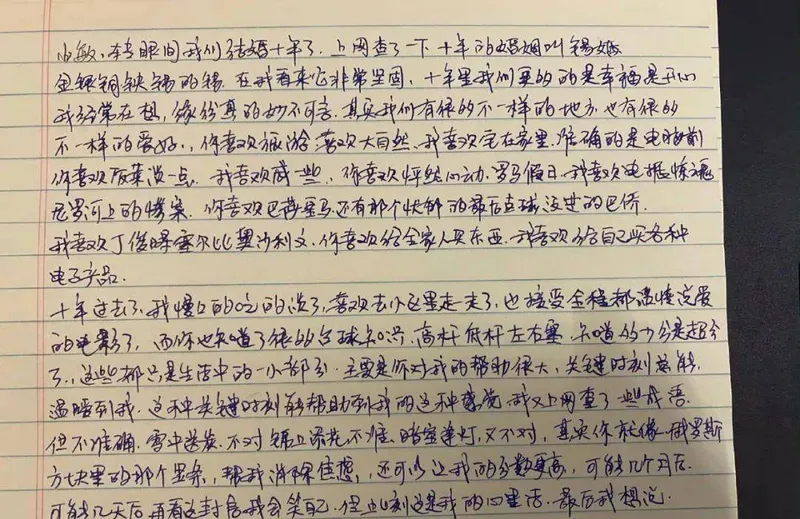 小敏,转眼间我们结婚十年了,上网查了一下十年的婚姻叫锡婚
金银铜铁锡的锡.在我看来它非常坚固,十年里我们更多的是幸福是开心
我经常在想,缘份真的妙不可言.其实我们有很多不一样的地方也有很多
不一样的爱好,你喜欢旅游 喜欢大自然,我喜欢宅在家里.准确的是电脑前
你喜欢饭菜淡一点.我喜欢咸一些,你喜欢怦然心动.罗马假日.我喜欢电锯惊魂
尼罗河上的惨案.你喜欢巴萨皇马还有那个忧郁的最后点球没进的巴乔.
我喜欢丁俊晖塞尔比奥沙利文.你喜欢给全家人买东西.我喜欢给自己买各种
电子产品.
十年过去了,我慢慢的吃的淡了,喜欢去小区里走一走了,也接受全程都谈情说爱
的电影了,而你也知道了很多台球知识.高杆 低杆左右塞.知道的十分是超分
了,这些都只是生活中的一小部分.主要是你对我的帮助很大,关键时刻总能
温暖到我.这种关键时刻能帮助到我的这种感觉 我又上网查了一些成语.
但不准确.雪中送炭.不对 锦上添花不准.暗室逢灯,又不对,其实你就像俄罗斯
方块里的那个竖条,帮我消除焦虑,还可以让我的分数更高,可能几个月后.
可能几天后再看这封信我会笑自己.但此刻这是我的心里话.最后我想说.